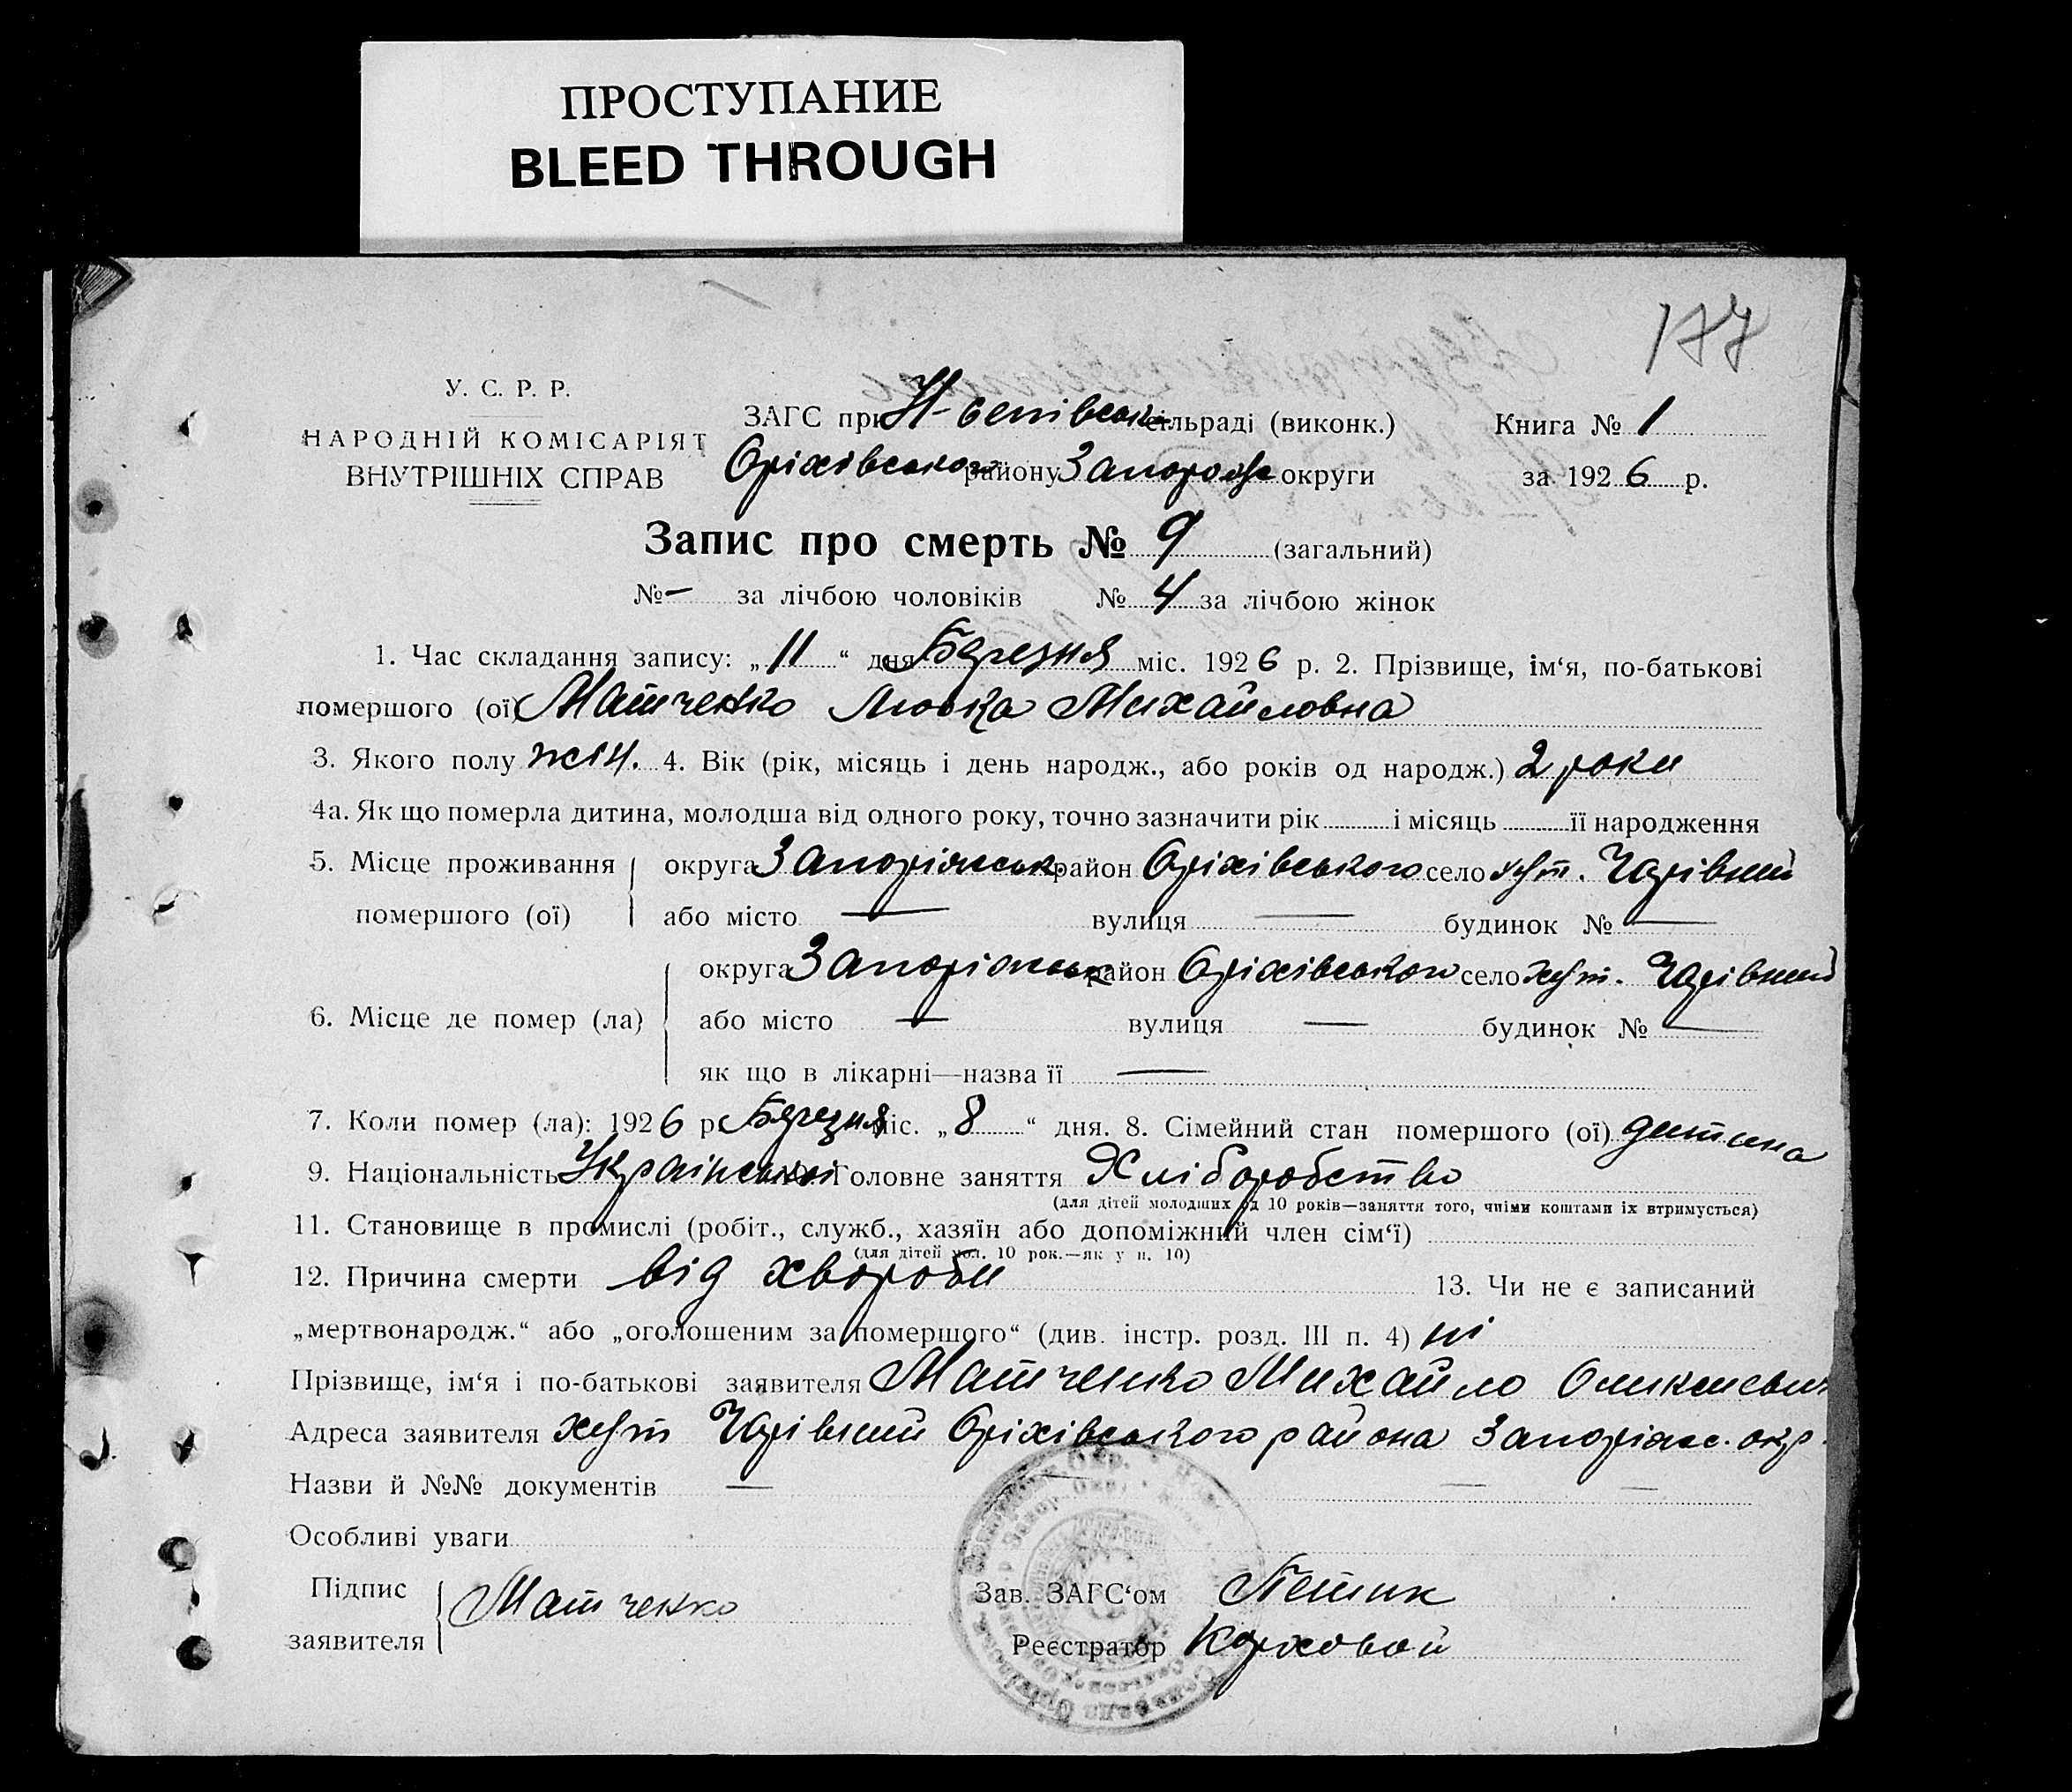 ПРОСТУПАНИЕ
BLEED THROUGH
177
У. С. Р. Р.
НАРОДНІЙ КОМІСАРІЯТ
ВНУТРІШНІХ СПРАВ
ЗАГС при сільраді (виконк.)
Оріхівського району Запорозьк округи
Книга № 1
за 1926 р.
Запис про смерть № 9 (загальний)
№ — за лічбою чоловіків № 4 за лічбою жінок
1. Час складання запису: „11“ дня Березня міс. 1926 р. 2. Прізвище, ім‘я, по-батькові
помершого (ої) Матченко Любка Михайловна
3. Якого полу жін. 4. Вік (рік, місяць і день народж., або років од народж.) 2 роки
4а. Як що померла дитина, молодша від одного року, точно зазначити рік і місяць її народження
5. Місце проживання помершого (ої) округа Запоріжськ. район Оріхівського село хут. Чарівний
або місто — вулиця — будинок № —
6. Місце де помер (ла) округа Запоріжськ район Оріхівського село хут. Чарівний
або місто — вулиця — будинок № —
як що в лікарні—назва її —
7. Коли помер (ла): 1926 р. Березня міс. „8“ дня. 8. Сімейний стан помершого (ої) дитина
9. Національність Української 10. Головне заняття Хліборобство
(для дітей молодших од 10 років—заняття того, чиїми коштами їх втримується)
11. Становище в промислі (робіт., служб., хазяїн або допоміжний член сім‘ї)
(для дітей мол. 10 рок.—як у п. 10)
12. Причина смерти від хвороби 13. Чи не є записаний
„мертвонародж.“ або „оголошеним за помершого“ (див. інстр. розд. III п. 4) ні
Прізвище, ім‘я і по-батькові заявителя Матченко Михайло Олексієвич
Адреса заявителя хут Чарівний Оріхівського района Запоріжс. окр.
Назви й №№ документів —
Особливі уваги
Підпис заявителя Матченко
Зав. ЗАГС‘ом Петик
Реєстратор Корховой